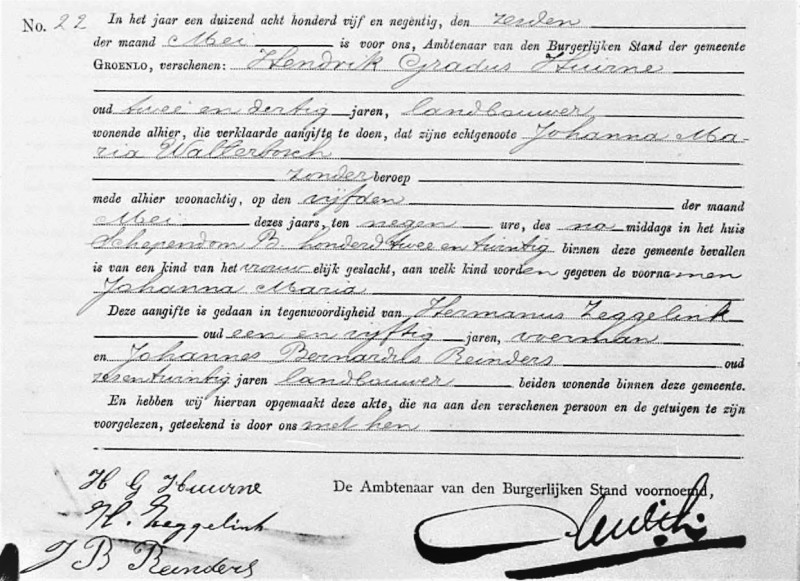 No. 22 In het jaar een duizend acht honderd vijf en negentig, den zesden
der maand Mei is voor ons, Ambtenaar van den Burgerlijken Stand der gemeente
GROENLO, verschenen: Hendrik Gradus Huurne
oud twee en dertig jaren, landbouwer
wonende alhier, die verklaarde aangifte te doen, dat zijne echtgenoote Johanna Ma-
ria Walterbosch
zonder beroep
mede alhier woonachtig, op den vijfden der maand
Mei dezes jaars, ten negen ure, des na middags in het huis
Schependom B. honderd twee en twintig binnen deze gemeente bevallen
is van een kind van het vrouwelijk geslacht, aan welk kind worden gegeven de voornamen
Johanna Maria
Deze aangifte is gedaan in tegenwoordigheid van Hermanus Zeggelink
oud een en vijftig jaren, voerman
en Johannes Bernardus Reinders oud
zesentwintig jaren landbouwer beiden wonende binnen deze gemeente.
En hebben wij hiervan opgemaakt deze akte, die na aan den verschenen persoon en de getuigen te zijn
voorgelezen, geteekend is door ons met hen
De Ambtenaar van den Burgerlijken Stand voornoemd,
H G Huurne
H. Zeggelink
J B Reinders